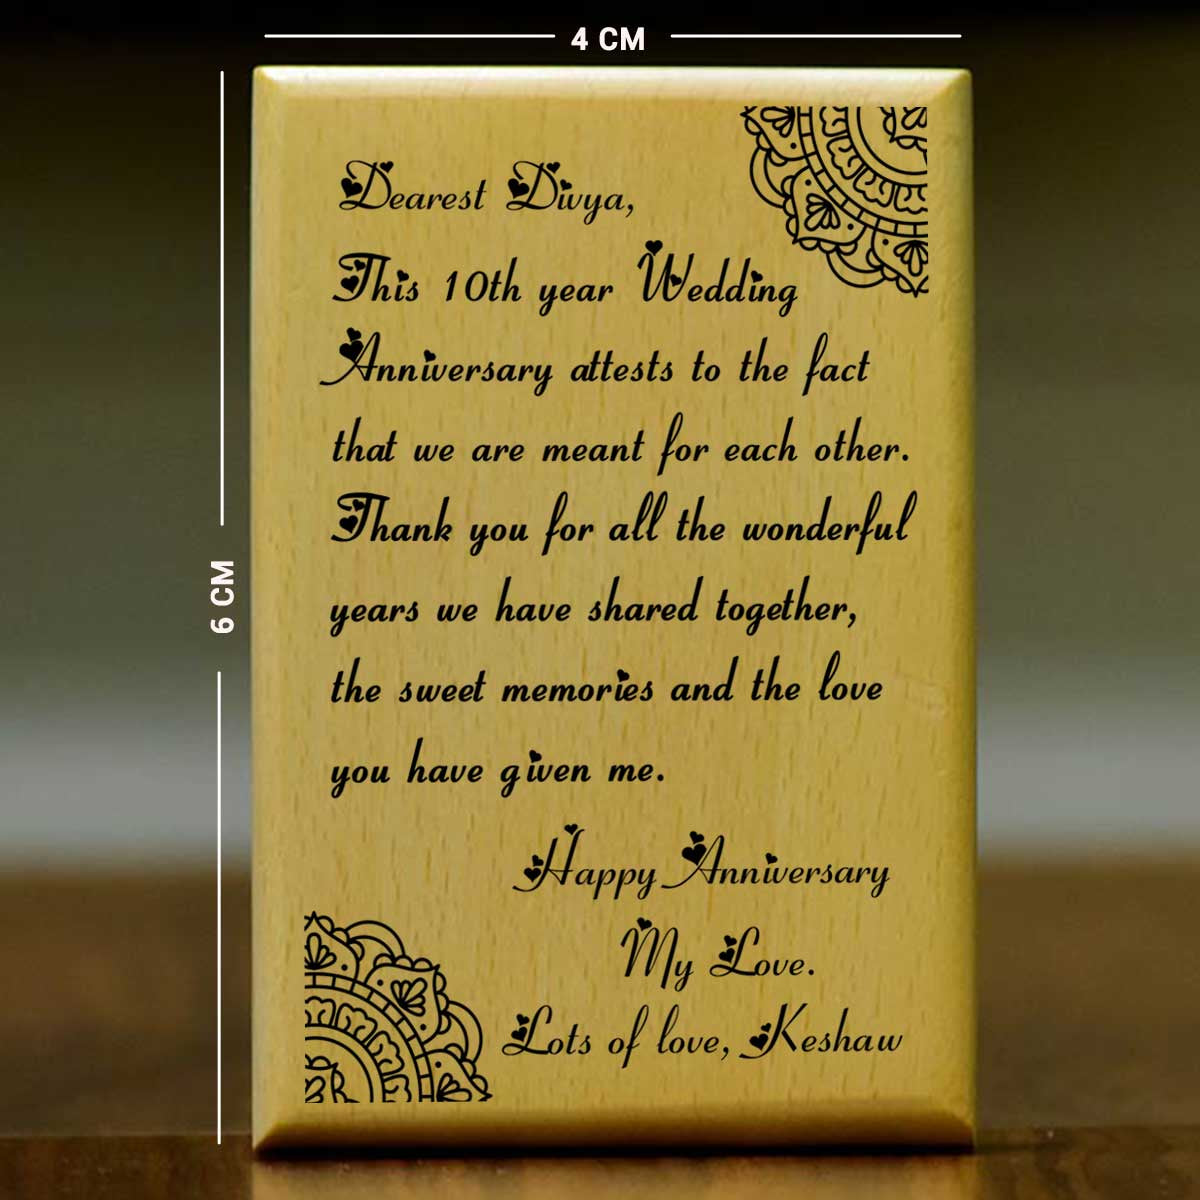 4 CM
6 CM
Dearest Divya,
This 10th year Wedding
Anniversary attests to the fact
that we are meant for each other.
Thank you for all the wonderful
years we have shared together,
the sweet memories and the love
you have given me.
Happy Anniversary
My Love.
Lots of love, Keshaw